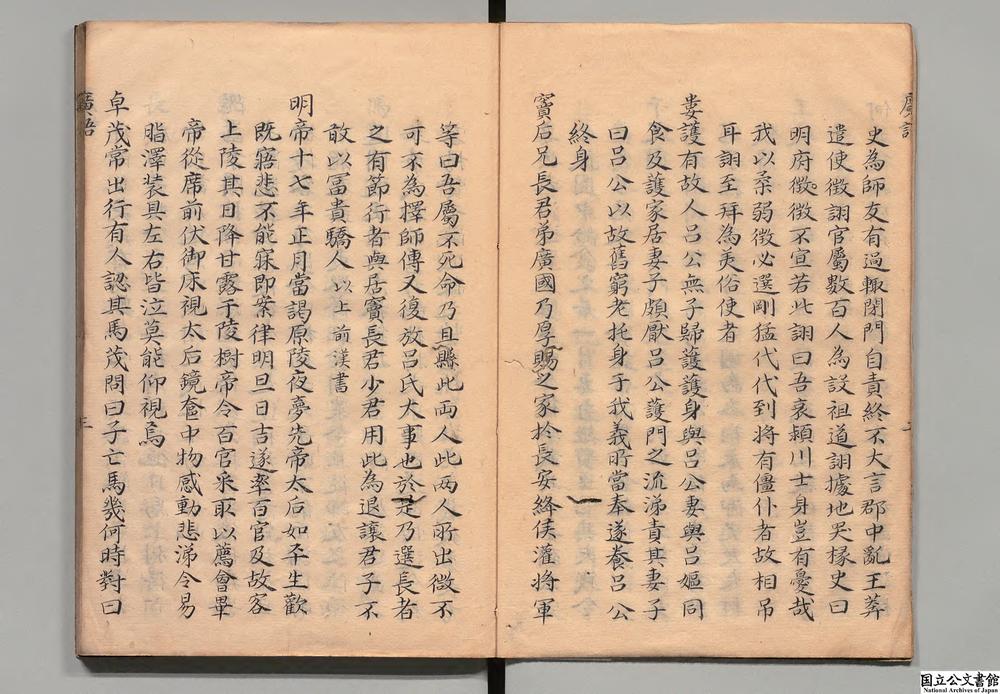 史為師友有過輙閉門自責終不大言郡中亂王莽
遣使徵詡官屬數百人為設祖道詡據地哭掾史曰
明府徵徵不宣若此詡曰吾哀頴川士身豈有憂哉
我以柔弱徵必選剛猛代代到將有僵仆者故相吊
耳詡至拜為美俗使者
婁護有故人呂公無子歸護護身與呂公妻與呂嫗同
食及護家居妻子頗厭呂公護門之流涕責其妻子
曰呂公以故舊窮老托身于我義所當奉遂養呂公
終身
竇后兄長君弟廣國乃厚賜之家於長安絳侯灌將軍
等曰吾屬不死命乃且縣此兩人此兩人所出微不
可不為擇師傳又復放呂氏大事也於是乃選長者
之有節行者與居竇長君少君用此為退讓君子不
敢以冨貴驕人 以上前漢書
明帝十七年正月當謁原陵夜夢先帝太后如平生歡
既寤悲不能寐即案律明旦日吉遂率百官及故客
上陵其日降甘露于陵樹帝令百官采取以薦會畢
帝從席前伏御床視太后鏡奩中物感動悲涕令易
脂澤裝具左右皆泣莫能仰視焉
卓茂常出行有人認其馬茂問曰子亡馬幾何時對曰
廣語
三